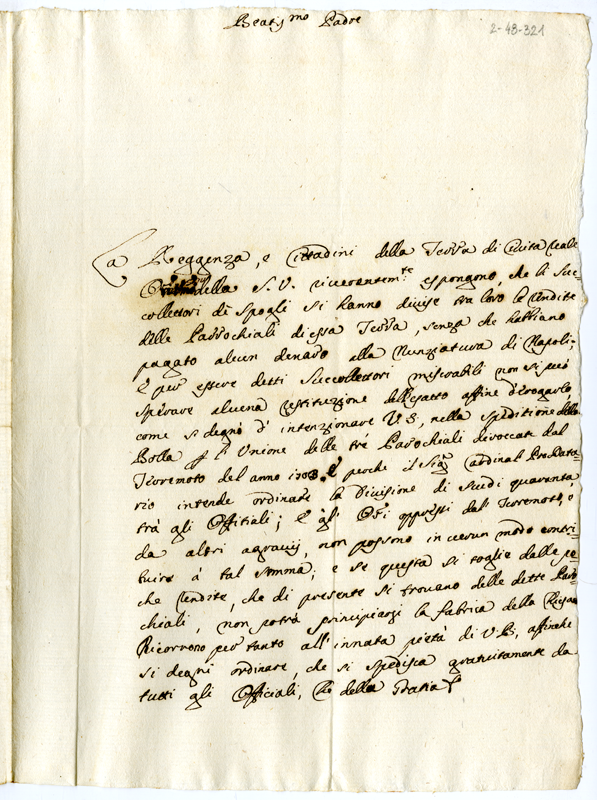 Beat.mo Padre
2-48-321
La Reggenza, e Cittadini della Terra di Civita Reale
Orri della S. V. riverentem.te espongono, che li Suc=
collettori di Spogli si hanno divise tra loro le rendite
delle Parrochiali di essa Terra, senza che habbiano
pagato alcun denaro alla Nunziatura di Napoli;
E per essere detti Succollettori miserabili non si può
sperare alcuna restituzione dell'esatto affine d'erogarlo,
come si degnò d'intenzionare V.B. nella speditione della
Bolla p l'Unione delle tre Parrochiali diroccate dal
Terremoto del anno 1703. E perche il Sig.r Cardinal ProData=
rio intende ordinare la Divisione di Scudi quaranta
trà gli Offitiali; E gli Ori oppressi dal Terremoto, e
da altri agravij, non possono in verun modo contri=
buire à tal somma; e se questa si toglie dalle po
che rendite, che di presente si trovano delle dette Parro
chiali, non potrà principiarsi la fabrica della Chiesa
Ricorrono per tanto all'innata pietà di V.B., affinche
si degni ordinare, che si spedisca gratuitamente da
tutti gli Officiali, Che della Gratia